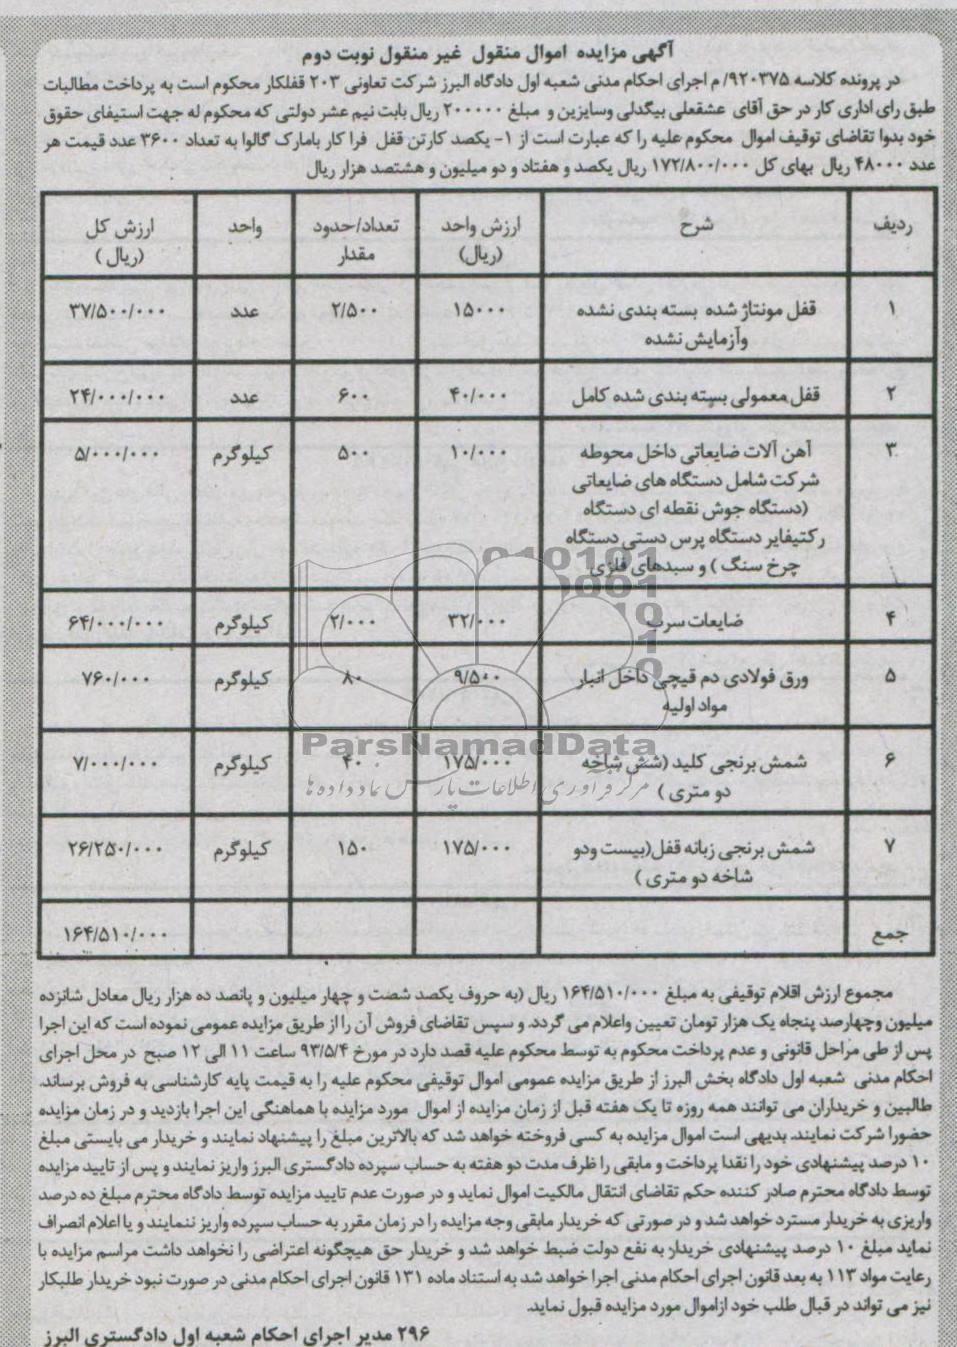 آگهی مزایده اموال منقول غیر منقول نوبت دوم
در پرونده کلاسه ۹۲۰۳۷۵/ م اجرای احکام مدنی شعبه اول دادگاه البرز شرکت تعاونی ۲۰۳ قفلکار محکوم است به پرداخت مطالبات
طبق رای اداری کار در حق آقای عشقعلی بیگدلی وسایزین و مبلغ ۲۰۰۰۰۰ ریال بابت نیم عشر دولتی که محکوم له جهت استیفای حقوق
خود بدوا تقاضای توقیف اموال محکوم علیه را که عبارت است از ۱- یکصد کارتن قفل فرا کار بامارک گالوا به تعداد ۳۶۰۰ عدد قیمت هر
عدد ۴۸۰۰۰ ریال بهای کل ۱۷۲/۸۰۰/۰۰۰ ریال یکصد و هفتاد و دو میلیون و هشتصد هزار ریال
ردیف شرح ارزش واحد (ریال) تعداد/حدود مقدار واحد ارزش کل (ریال)
۱ قفل مونتاژ شده بسته بندی نشده ۱۵۰۰۰ ۲/۵۰۰ عدد ۳۷/۵۰۰/۰۰۰
وآزمایش نشده
۲ قفل معمولی بسته بندی شده کامل ۴۰/۰۰۰ ۶۰۰ عدد ۲۴/۰۰۰/۰۰۰
۳ آهن آلات ضایعاتی داخل محوطه ۱۰/۰۰۰ ۵۰۰ کیلوگرم ۵/۰۰۰/۰۰۰
شرکت شامل دستگاه های ضایعاتی
(دستگاه جوش نقطه ای دستگاه
رکتیفایر دستگاه پرس دستی دستگاه
چرخ سنگ ) و سبدهای فلزی
۴ ضایعات سرب ۳۲/۰۰۰ ۲/۰۰۰ کیلوگرم ۶۴/۰۰۰/۰۰۰
۵ ورق فولادی دم قیچی داخل انبار ۹/۵۰۰ ۸۰ کیلوگرم ۷۶۰/۰۰۰
مواد اولیه
۶ شمش برنجی کلید (شش شاخه ۱۷۵/۰۰۰ ۴۰ کیلوگرم ۷/۰۰۰/۰۰۰
دو متری )
۷ شمش برنجی زبانه قفل(بیست ودو ۱۷۵/۰۰۰ ۱۵۰ کیلوگرم ۲۶/۲۵۰/۰۰۰
شاخه دو متری )
جمع ۱۶۴/۵۱۰/۰۰۰
ParsNamadData
مرکز فرآوری اطلاعات پارس نماد داده ها
مجموع ارزش اقلام توقیفی به مبلغ ۱۶۴/۵۱۰/۰۰۰ ریال (به حروف یکصد شصت و چهار میلیون و پانصد ده هزار ریال معادل شانزده
میلیون وچهارصد پنجاه یک هزار تومان تعیین واعلام می گردد. و سپس تقاضای فروش آن را از طریق مزایده عمومی نموده است که این اجرا
پس از طی مراحل قانونی و عدم پرداخت محکوم به توسط محکوم علیه قصد دارد در مورخ ۹۳/۵/۴ ساعت ۱۱ الی ۱۲ صبح در محل اجرای
احکام مدنی شعبه اول دادگاه بخش البرز از طریق مزایده عمومی اموال توقیفی محکوم علیه را به قیمت پایه کارشناسی به فروش برساند.
طالبین و خریداران می توانند همه روزه تا یک هفته قبل از زمان مزایده از اموال مورد مزایده با هماهنگی این اجرا بازدید و در زمان مزایده
حضورا شرکت نمایند. بدیهی است اموال مزایده به کسی فروخته خواهد شد که بالاترین مبلغ را پیشنهاد نمایند و خریدار می بایستی مبلغ
۱۰ درصد پیشنهادی خود را نقدا پرداخت و مابقی را ظرف مدت دو هفته به حساب سپرده دادگستری البرز واریز نمایند و پس از تایید مزایده
توسط دادگاه محترم صادر کننده حکم تقاضای انتقال مالکیت اموال نماید و در صورت عدم تایید مزایده توسط دادگاه محترم مبلغ ده درصد
واریزی به خریدار مسترد خواهد شد و در صورتی که خریدار مابقی وجه مزایده را در زمان مقرر به حساب سپرده واریز ننمایند و یا اعلام انصراف
نماید مبلغ ۱۰ درصد پیشنهادی خریدار به نفع دولت ضبط خواهد شد و خریدار حق هیچگونه اعتراضی را نخواهد داشت مراسم مزایده با
رعایت مواد ۱۱۳ به بعد قانون اجرای احکام مدنی اجرا خواهد شد به استناد ماده ۱۳۱ قانون اجرای احکام مدنی در صورت نبود خریدار طلبکار
نیز می تواند در قبال طلب خود ازاموال مورد مزایده قبول نماید.
۲۹۶ مدیر اجرای احکام شعبه اول دادگستری البرز